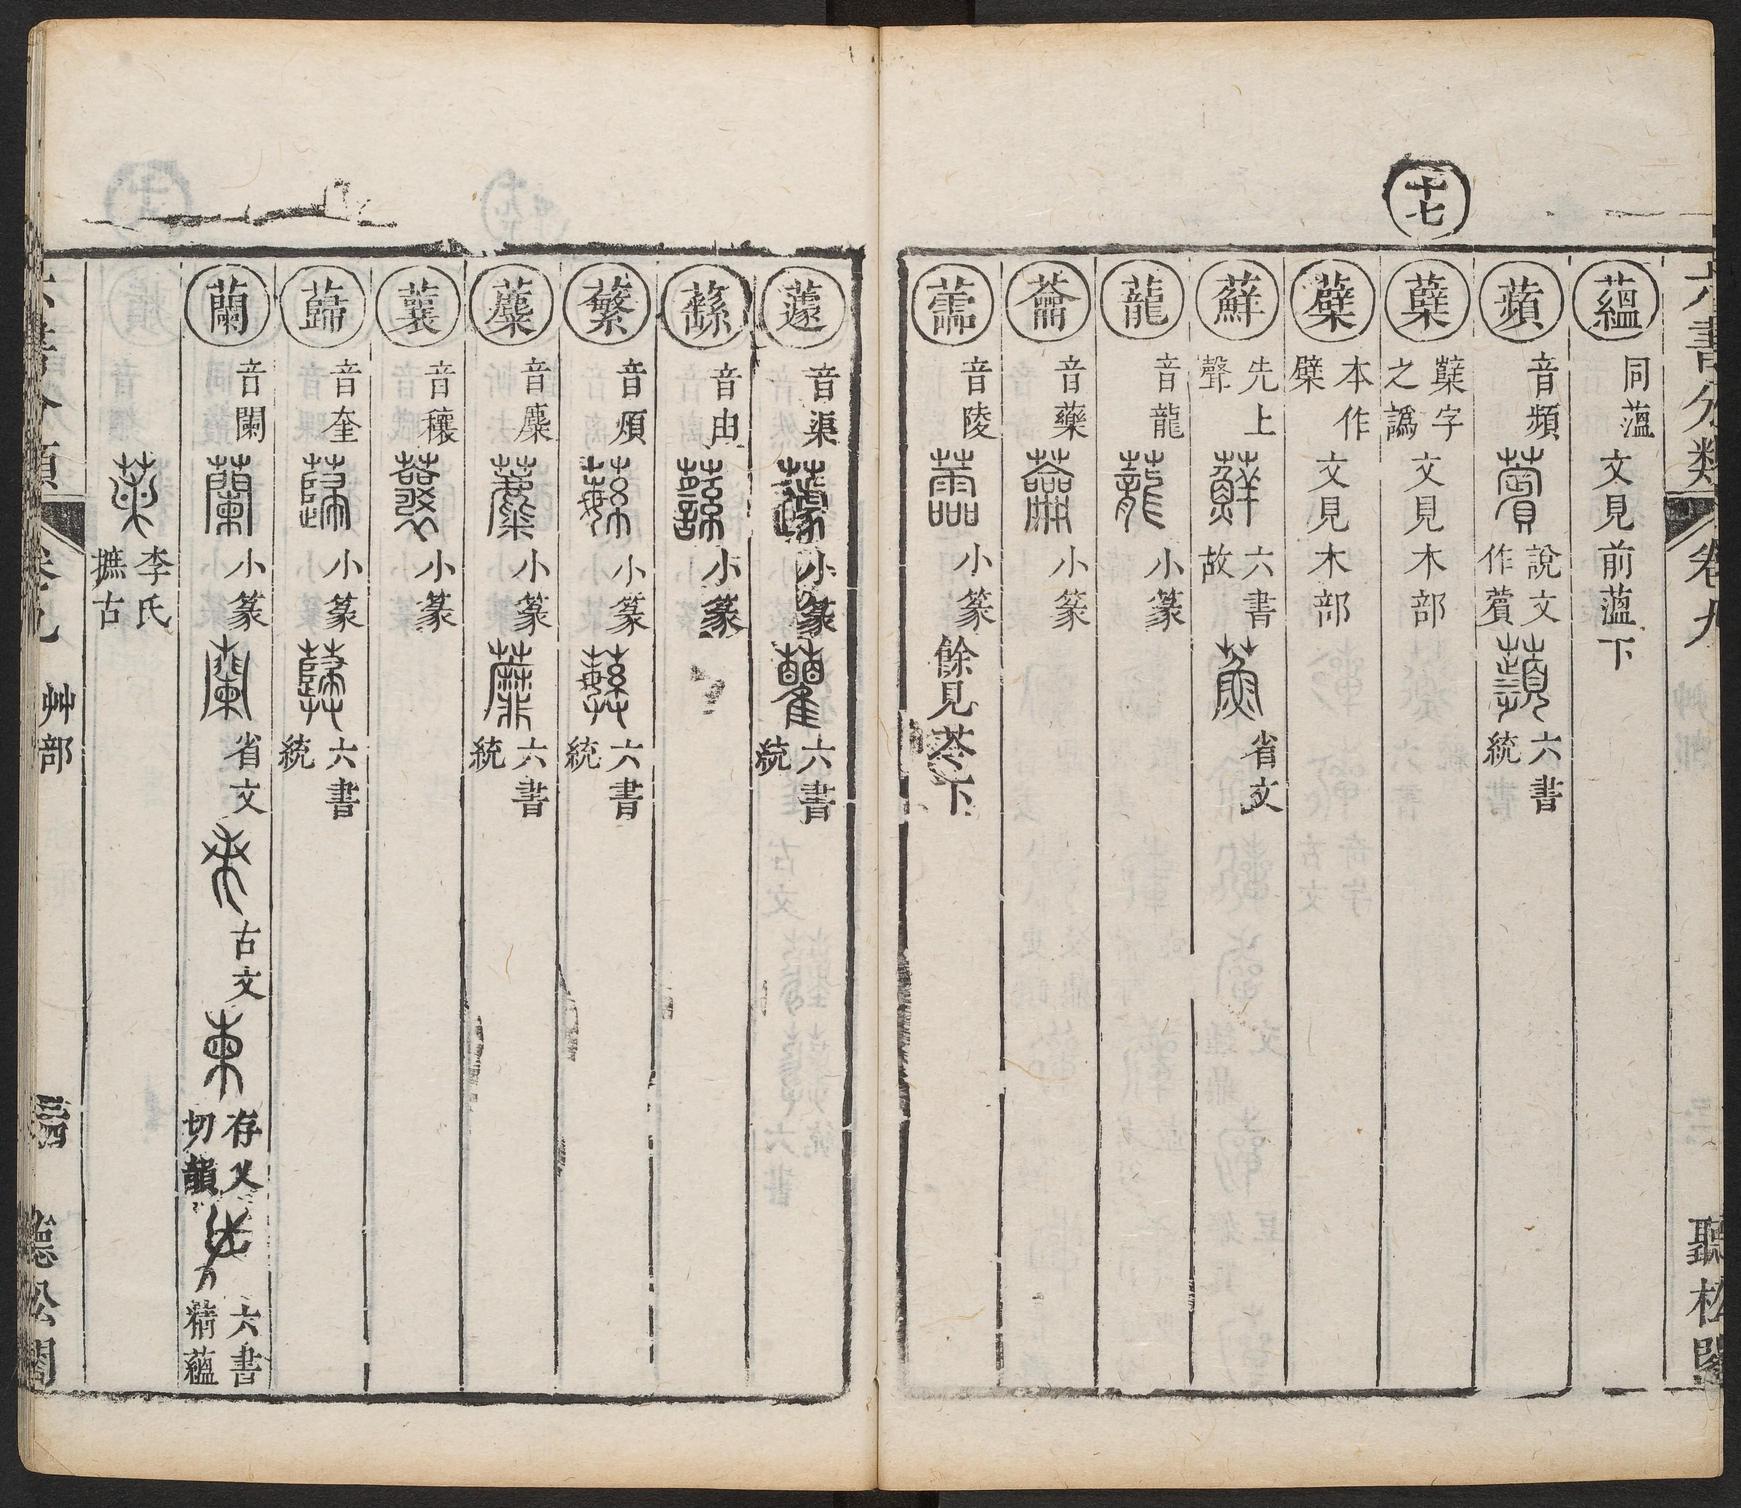 十七
六書分類 卷九 聽松閣
蘊 同薀 文見前薀下
蘋 音頻 說文作薲 六書統
蘖 糱字之譌 文見木部
蘗 本作檗 文見木部
蘚 先上聲 六書故 省文
蘢 音龍 小篆
蘥 音藥 小篆
蘦 音陵 小篆 餘見苓下
蘧 音渠 小篆 六書統
蘨 音由 小篆
蘩 音煩 小篆 六書統
蘪 音麋 小篆 六書統
蘘 音穰 小篆
蘬 音奎 小篆 六書統
蘭 音闌 小篆 省文 古文 存乂切韻 六書精蘊
李氏摭古
六書分類 卷九 艸部 聽松閣